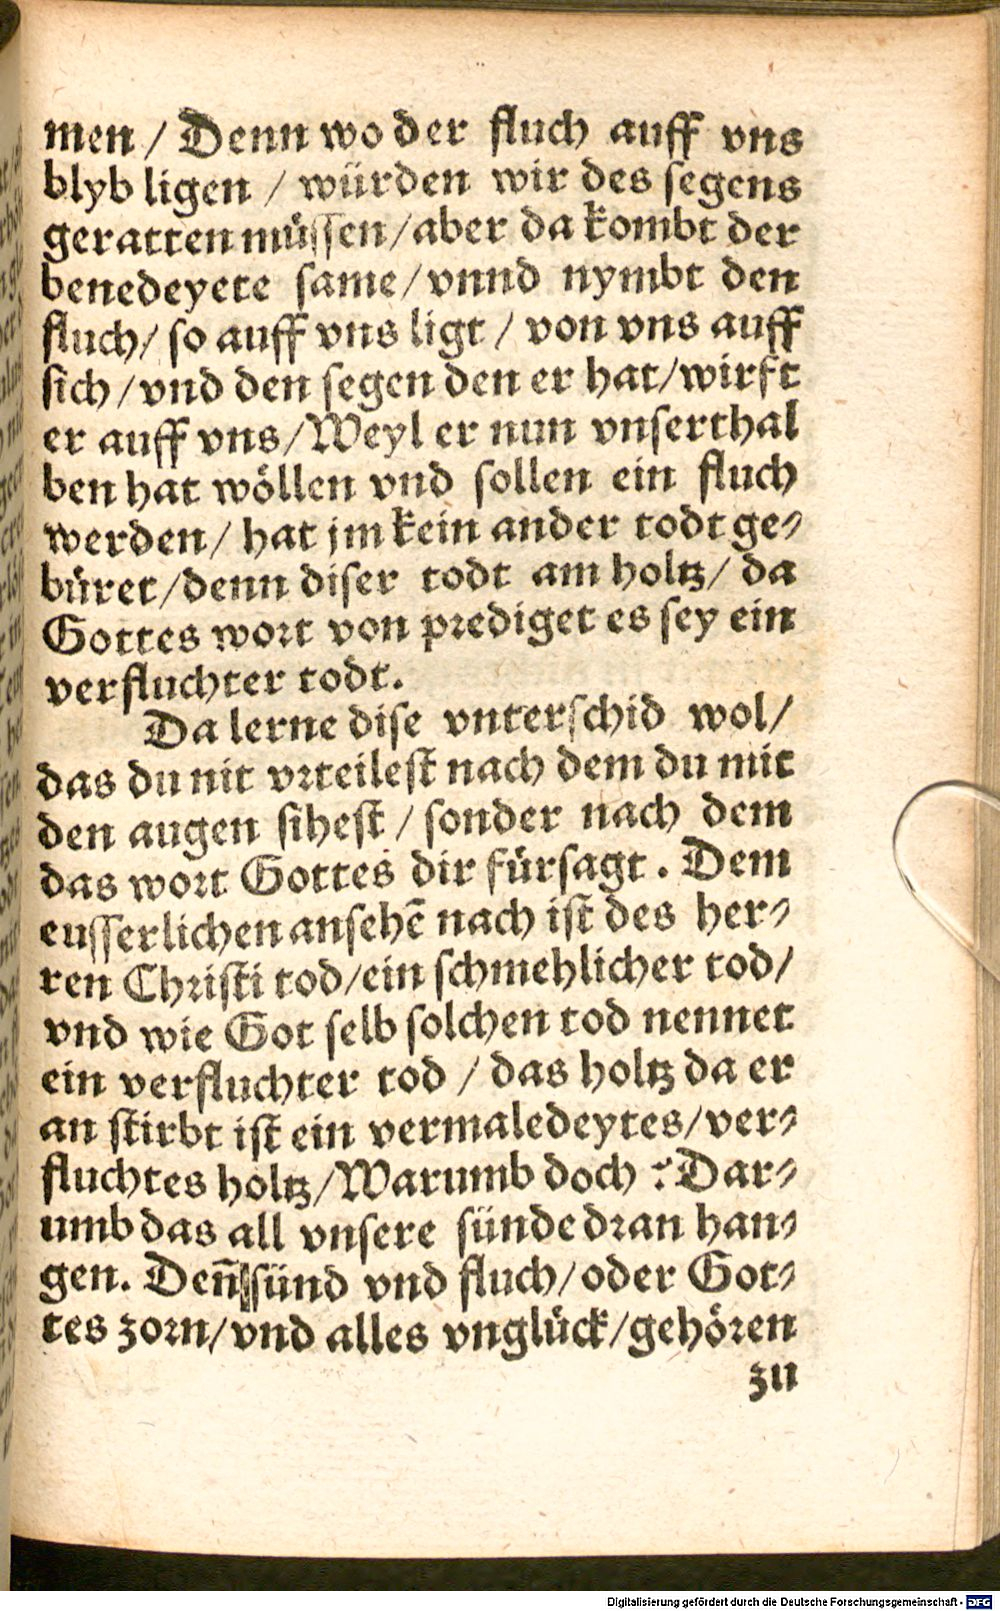 men / Denn wo der fluch auff vns
blyb ligen / würden wir des segens
geratten müssen/aber da kombt der
benedeyete same/vnnd nymbt den
fluch/ so auff vns ligt / von vns auff
sich/vnd den segen den er hat/wirft
er auff vns/Weyl er nun vnserthal
ben hat wöllen vnd sollen ein fluch
werden/ hat jm kein ander todt ge⸗
büret/denn diser todt am holtz/ da
Gottes wort von prediget es sey ein
verfluchter todt.
Da lerne dise vnterschid wol/
das du nit vrteilest nach dem du mit
den augen sihest / sonder nach dem
das wort Gottes dir fürsagt. Dem
eusserlichen ansehē nach ist des her⸗
ren Christi tod/ein schmehlicher tod/
vnd wie Got selb solchen tod nennet
ein verfluchter tod / das holtz da er
an stirbt ist ein vermaledeytes/ver⸗
fluchtes holtz/Warumb doch ? Dar⸗
umb das all vnsere sünde dran han⸗
gen. Deñ sünd vnd fluch/oder Got⸗
tes zorn/vnd alles vnglück/gehören
zu
Digitalisierung gefördert durch die Deutsche Forschungsgemeinschaft - DFG